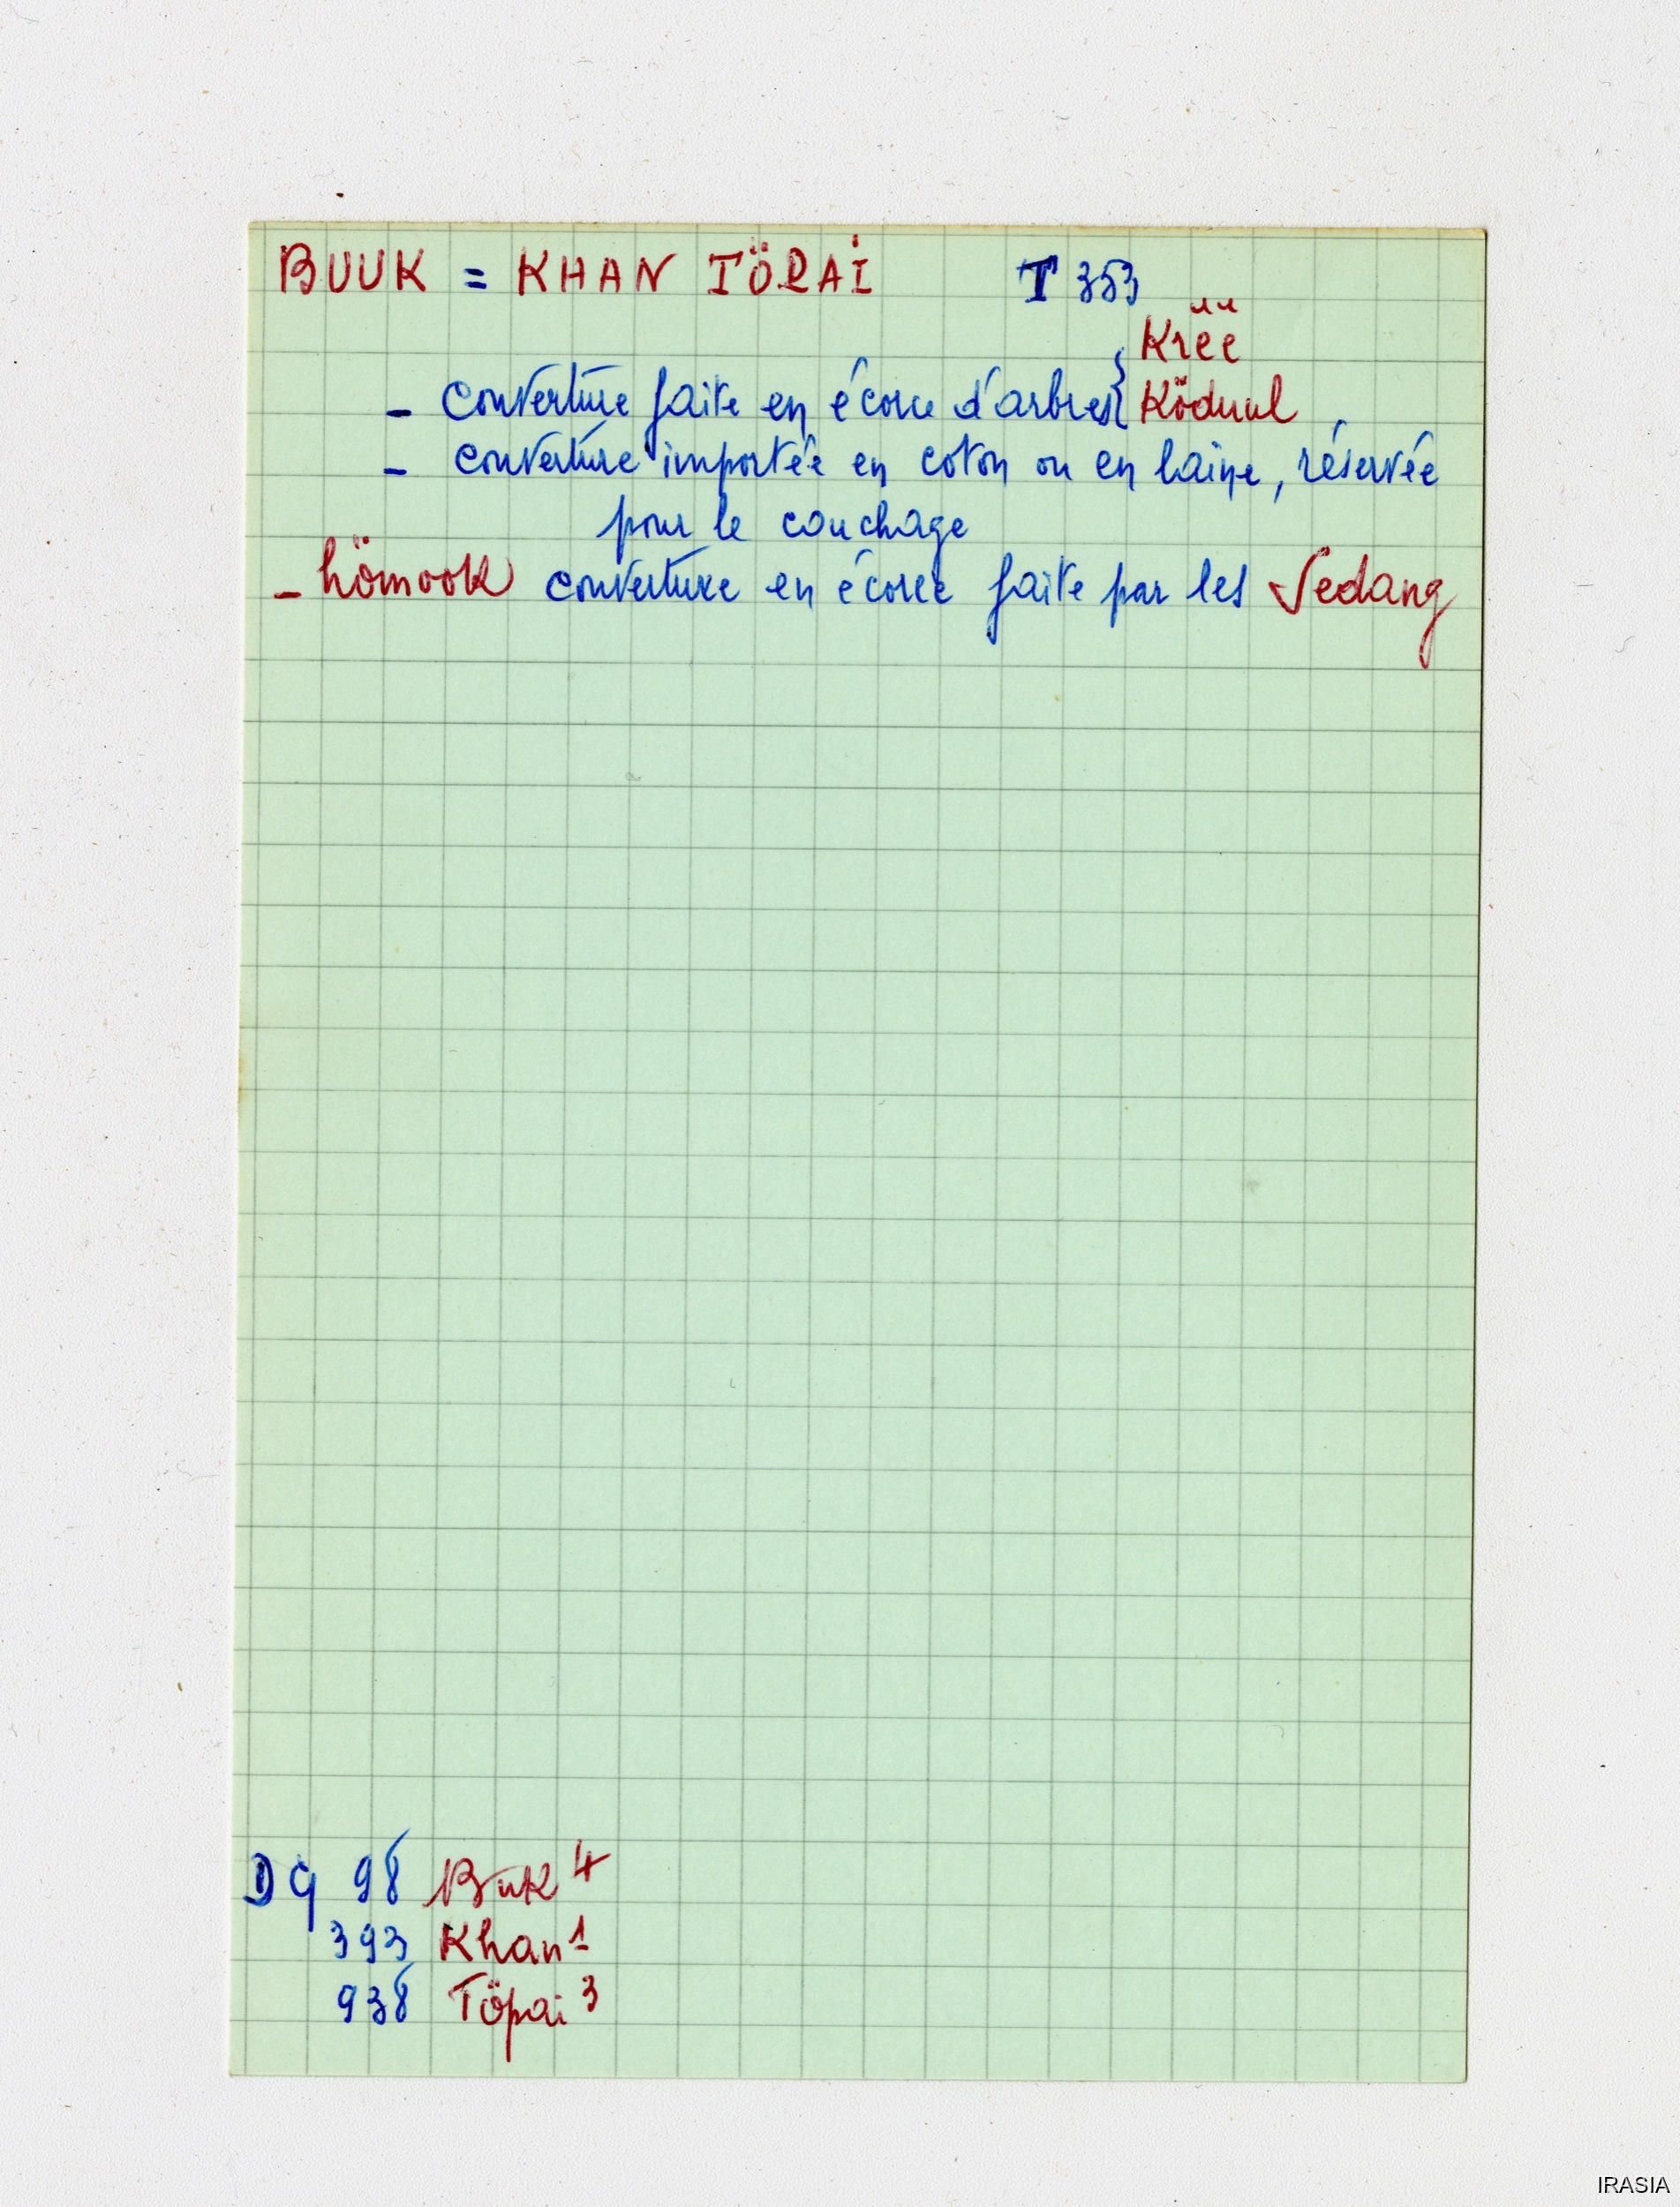 BUUK = KHAN TÖPAI T 353
Krĕĕ
- couverture faite en écorce d'arbres { Köduul
- couverture importée en coton ou en laine, réservée
pour le couchage
- hömook couverture en écorce faite par les Sedang
DG 98 Buk 4
393 Khan 1
938 Töpai 3
IRASIA